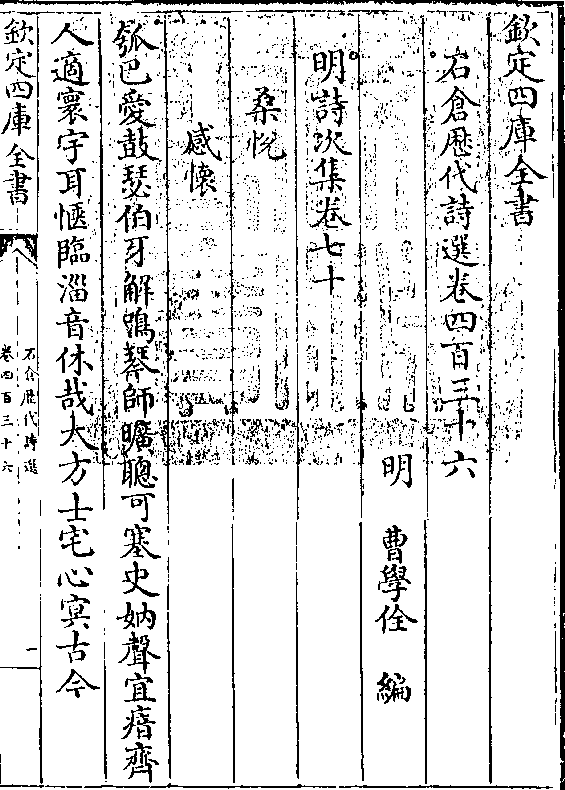 欽定四庫全書
石倉歴代詩選卷四百三十六
明 曹學佺 編
明詩次集卷七十
桑悅
感懷
瓠巴愛鼓瑟伯牙解鳴琴師曠聰可塞史妠聲宜瘖齊
人適寰宇耳愜臨淄音休哉大方士宅心㝠古今
欽定四庫全書
石倉歴代詩選
卷四百三十六
一